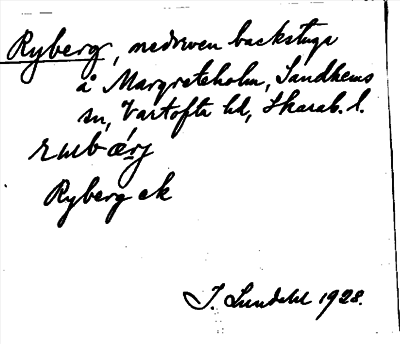 Ryberg, nedreven backstuga
å Margreteholm, Sandhems
sn, Vartofta hd, Skarab. l.
Ryberg ek
I. Lundahl 1928.